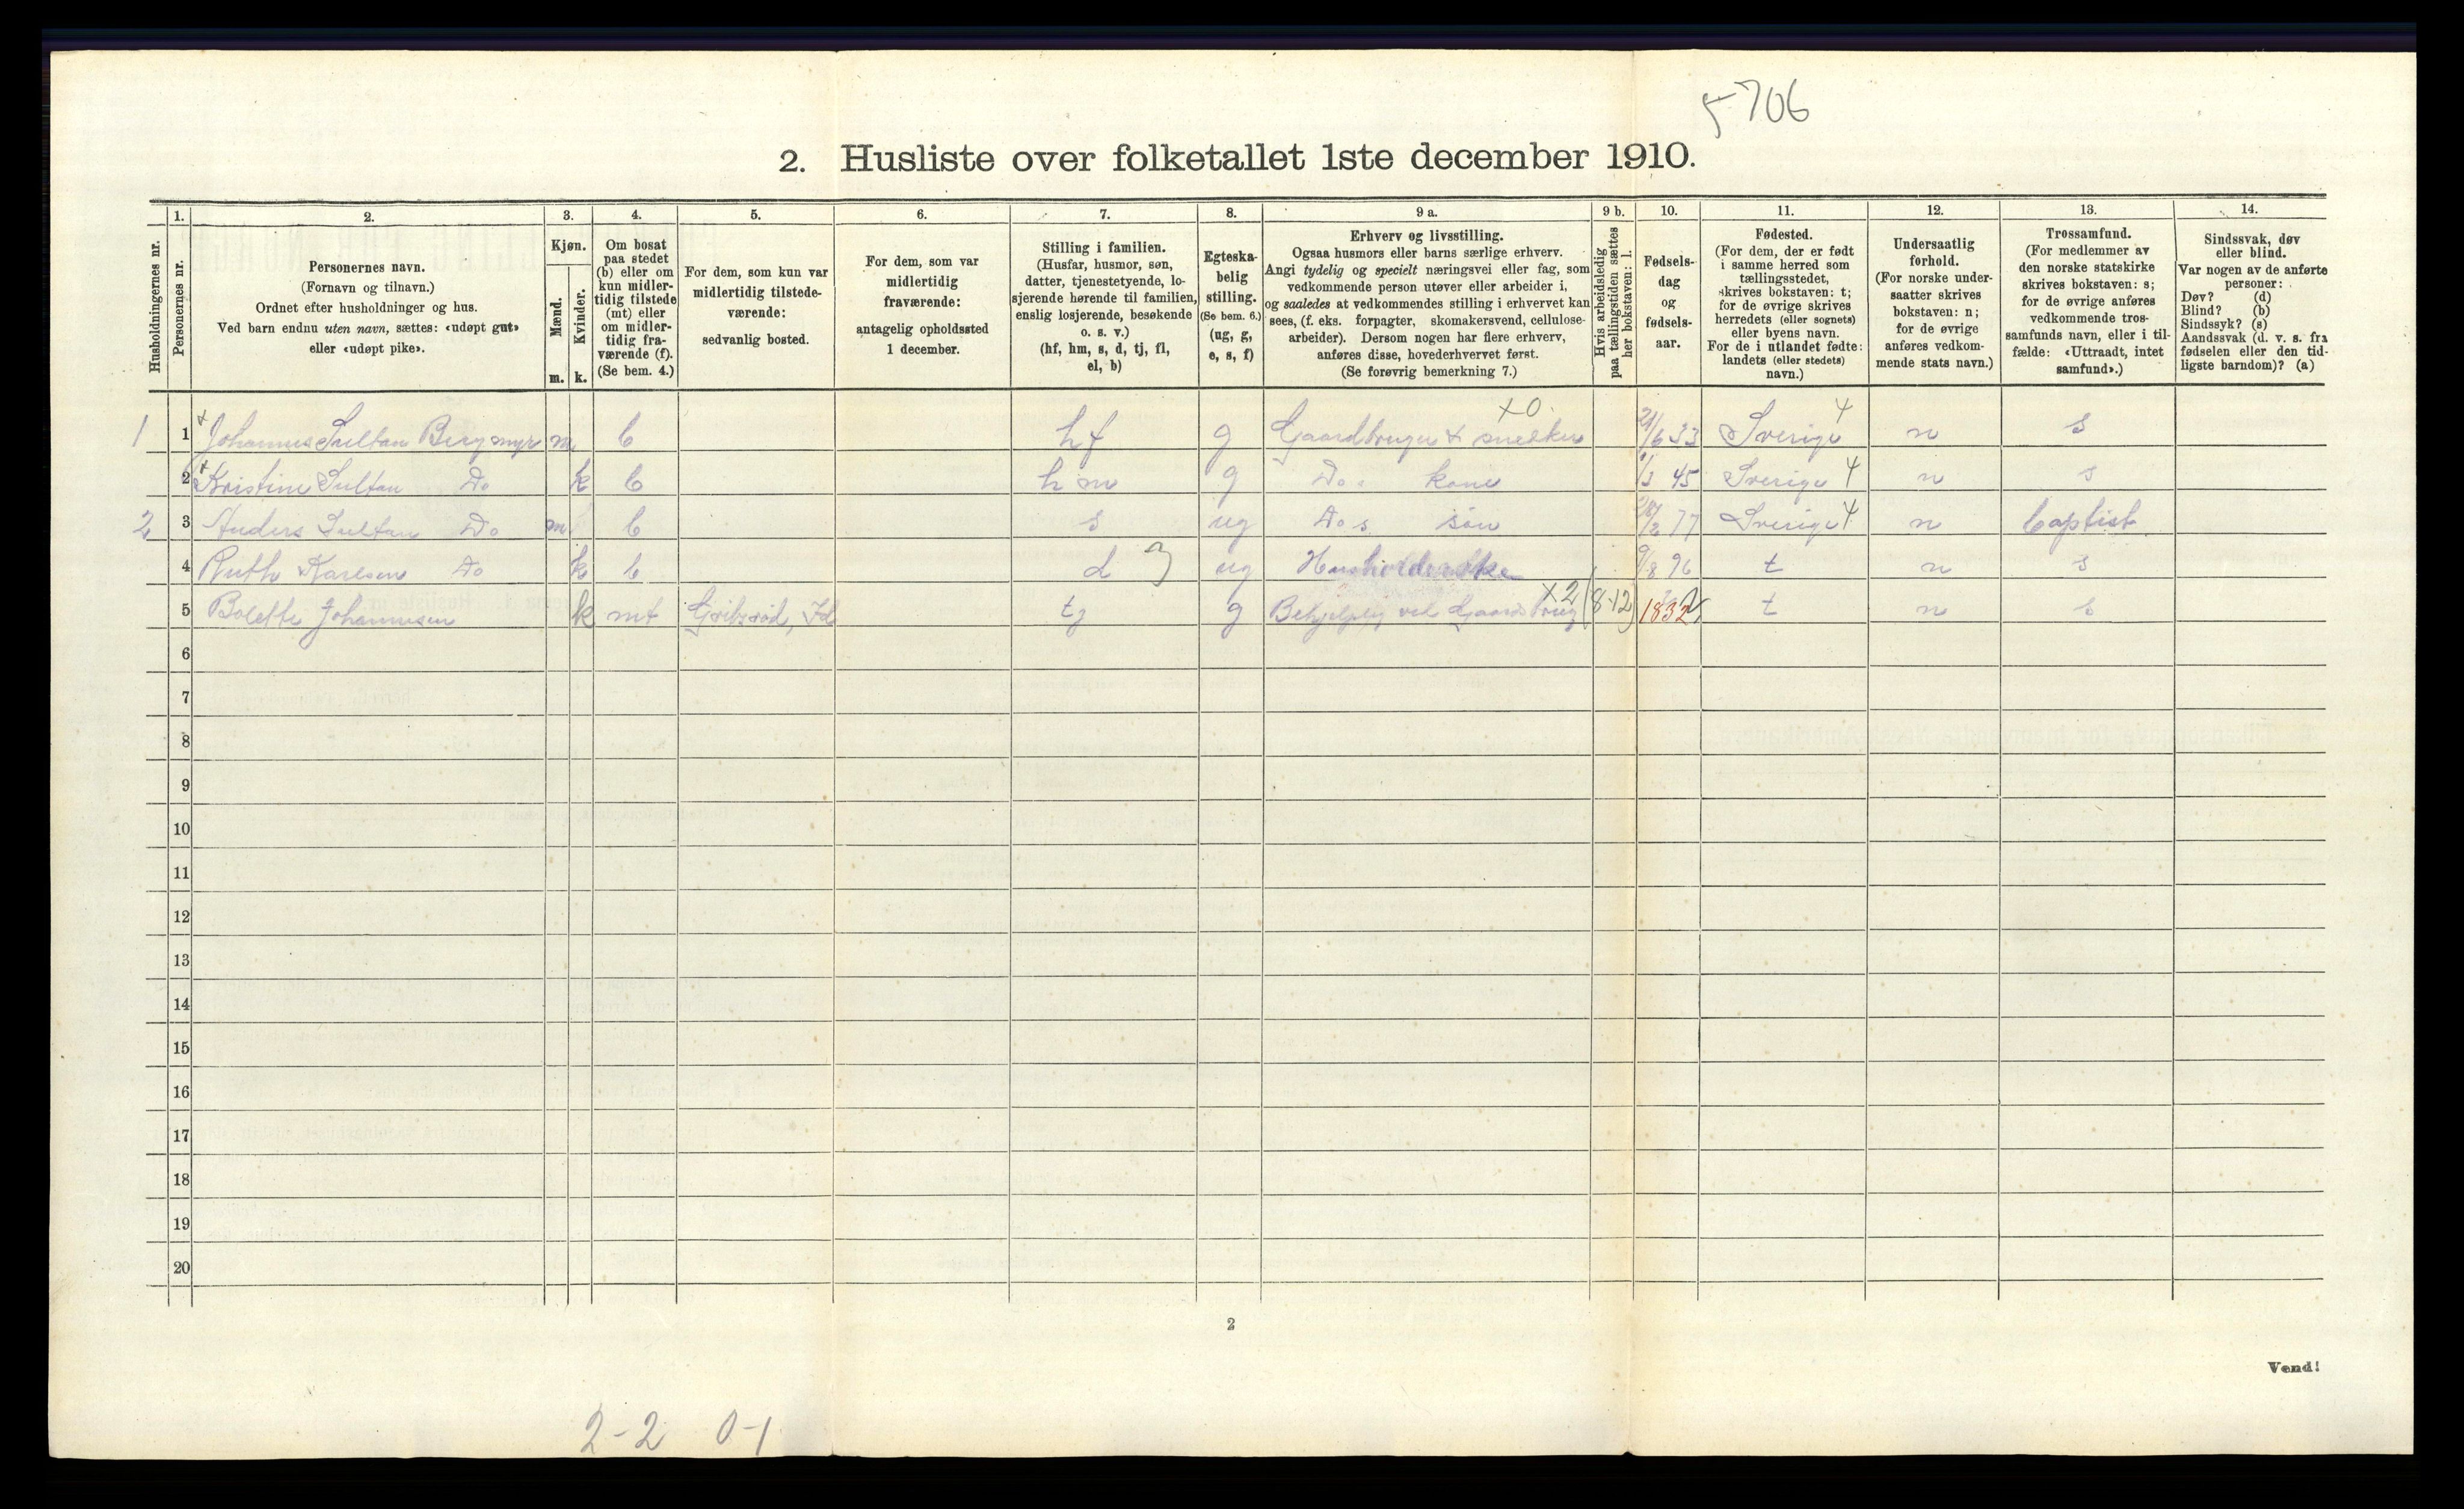 5706
2. Husliste over folketallet 1ste december 1910.
Husholdningernes nr.
1.
Personernes nr.
2.
Personernes navn.
(Fornavn og tilnavn.)
Ordnet efter husholdninger og hus.
Ved barn endnu uten navn, sættes: «udøpt gut»
eller «udøpt pike».
3.
Kjøn.
Mænd.
Kvinder.
m. k.
4.
Om bosat
paa stedet
(b) eller om
kun midler-
tidig tilstede
(mt) eller
om midler-
tidig fra-
værende (f).
(Se bem. 4.)
5.
For dem, som kun var
midlertidig tilstede-
værende:
sedvanlig bosted.
6.
For dem, som var
midlertidig
fraværende:
antagelig opholdssted
1 december.
7.
Stilling i familien.
(Husfar, husmor, søn,
datter, tjenestetyende, lo-
sjerende hørende til familien,
enslig losjerende, besøkende
o. s. v.)
(hf, hm, s, d, tj, fl,
el, b)
8.
Egteska-
belig
stilling.
(Se bem. 6.)
(ug, g,
e, s, f)
9 a.
Erhverv og livsstilling.
Ogsaa husmors eller barns særlige erhverv.
Angi tydelig og specielt næringsvei eller fag, som
vedkommende person utøver eller arbeider i,
og saaledes at vedkommendes stilling i erhvervet kan
sees, (f. eks. forpagter, skomakersvend, cellulose-
arbeider). Dersom nogen har flere erhverv,
anføres disse, hovederhvervet først.
(Se forøvrig bemerkning 7.)
9 b.
Hvis arbeidsledig
paa tællingstiden sættes
her bokstaven: l.
10.
Fødsels-
dag
og
fødsels-
aar.
11.
Fødested.
(For dem, der er født
i samme herred som
tællingsstedet,
skrives bokstaven: t;
for de øvrige skrives
herredets (eller sognets)
eller byens navn.
For de i utlandet fødte:
landets (eller stedets)
navn.)
12.
Undersaatlig
forhold.
(For norske under-
saatter skrives
bokstaven: n;
for de øvrige
anføres vedkom-
mende stats navn.)
13.
Trossamfund.
(For medlemmer av
den norske statskirke
skrives bokstaven: s;
for de øvrige anføres
vedkommende tros-
samfunds navn, eller i til-
fælde: «Uttraadt, intet
samfund».)
14.
Sindssvak, døv
eller blind.
Var nogen av de anførte
personer:
Døv? (d)
Blind? (b)
Sindssyk? (s)
Aandssvak (d. v. s. fra
fødselen eller den tid-
ligste barndom)? (a)
x0 4
1 1 x Johannes Sultan Bergmyr m b hf g Gaardbruger & snekker 21/6 33 Sverige n s
2 x Kristine Sultan Do k b hm g Do. kone 1/3 45 Sverige 4 n s
2 3 Anders Sultan Do m b s ug Dos søn 28/2 77 Sverige 4 n baptist
4 Ruth Karlsen Do k b d 3 ug 9/8 96 t n s
5 Bolette Johannesen k mt Id tj g Behjelpelig ved Gaardsbrug x2 (8-12) 1832 t n s
6
7
8
9
10
11
12
13
14
15
16
17
18
19
20
2
Vend!
2-2 0-1